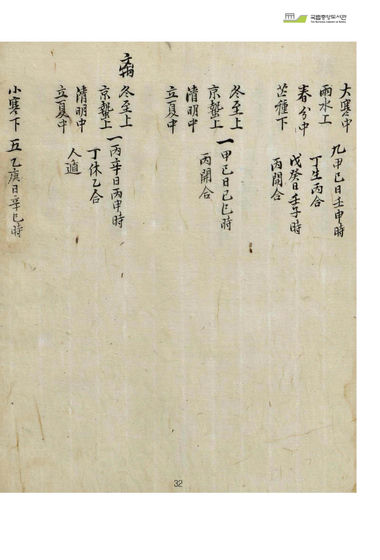 국립중앙도서관
大寒中
九甲己日壬申時
雨水上
丁生丙合
春分中
戊癸日壬子時
芒種下
丙間合
冬至上
一甲己日己巳時
京蟄上
丙開合
清明中
立夏中
病
冬至上
一丙辛日丙申時
京蟄上
丁休乙合
清明中
人遁
立夏中
小寒下
五乙庚日辛巳時
32